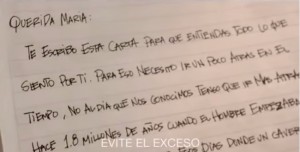 QUERIDA MARIA:
TE ESCRIBO ESTA CARTA PARA QUE ENTIENDAS TODO LO QUE
SIENTO POR TI. PARA ESO NECESITO IR UN POCO ATRAS EN EL
TIEMPO, NO AL DIA QUE NOS CONOCIMOS TENGO QUE IR MAS ATRAS
HACE 1.8 MILLONES DE AÑOS CUANDO EL HOMBRE EMPEZABA
EVITE EL EXCESO
DIAS DONDE UN